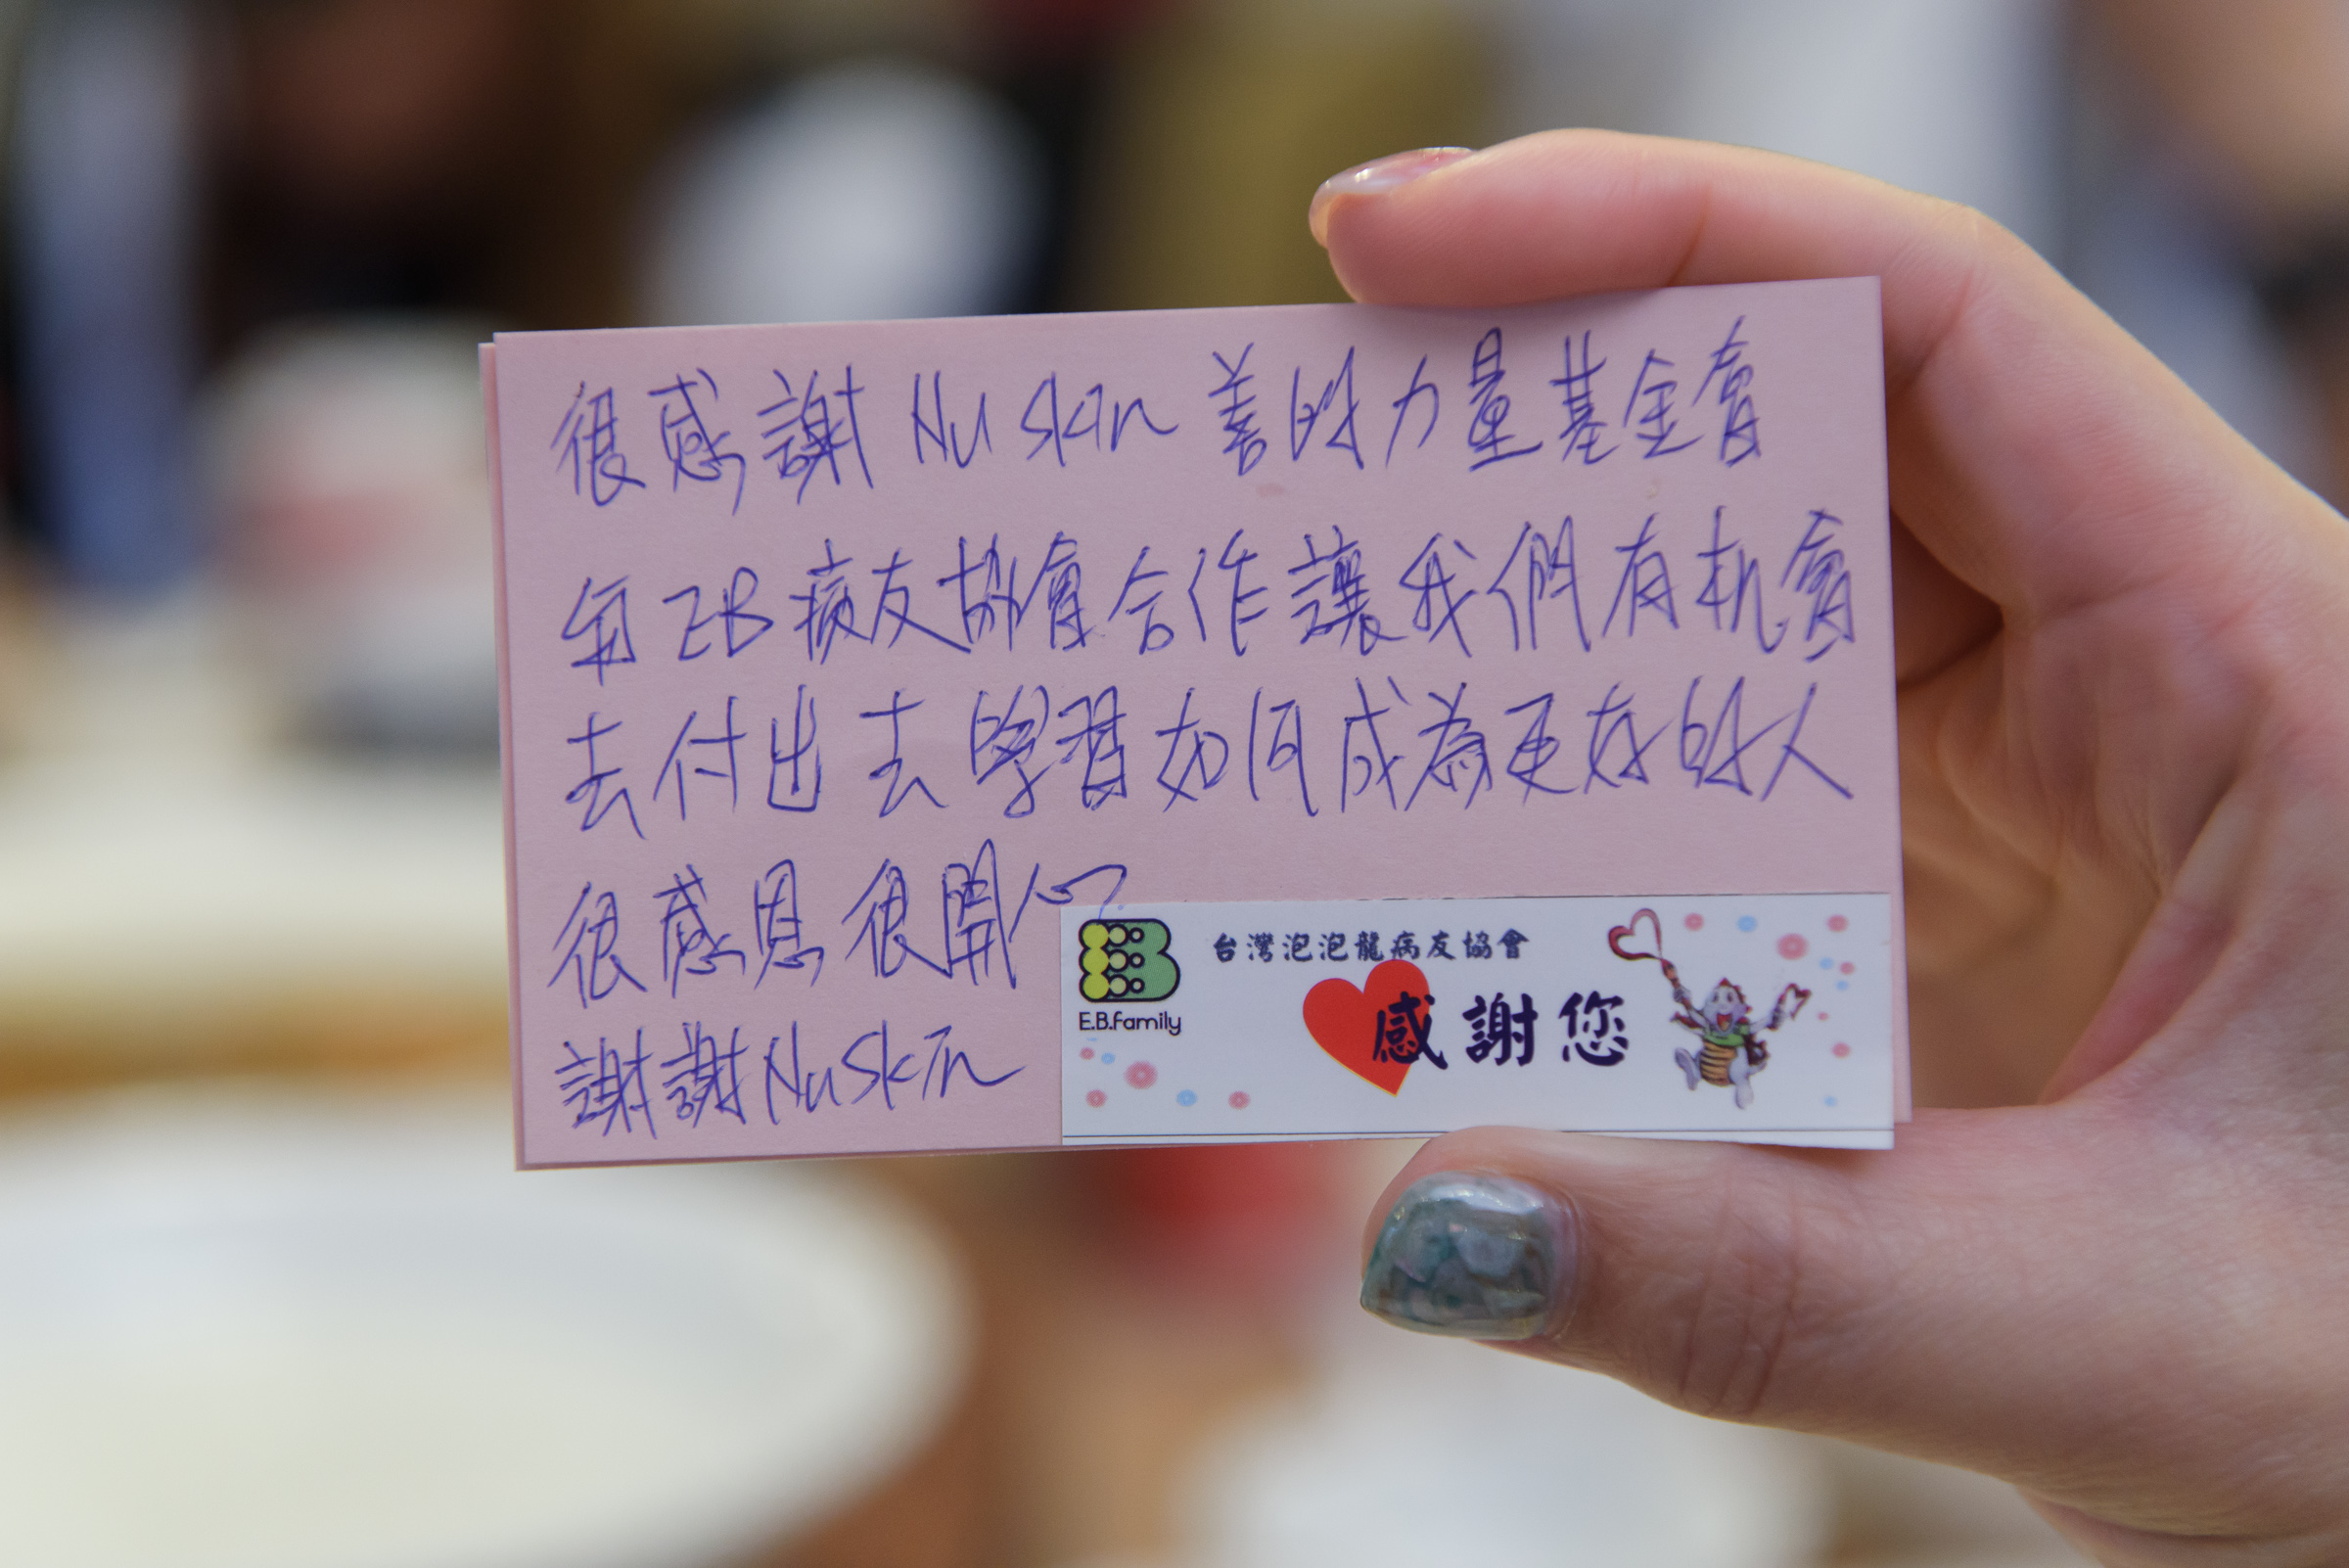 很感謝 Nu Skin 善的力量基金會
每EB病友協會合作讓我們有机會
去付出去學習如何成為更好的人
很感恩很開心
謝謝NuSkin
台灣泡泡龍病友協會
E.B.Family
感謝您